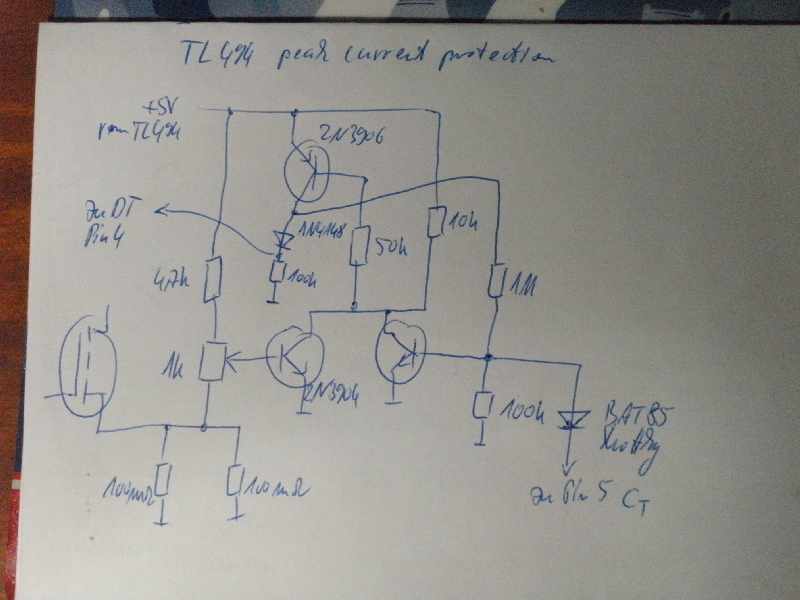 TL494 peak current protection
+5V
vom TL494
2N3906
zu DT
Pin 4
1N4148
100k
50k
10k
4,7k
1M
1k
2N3904
100k
BAT85
Schottky
100mΩ
100mΩ
zu Pin 5 CT